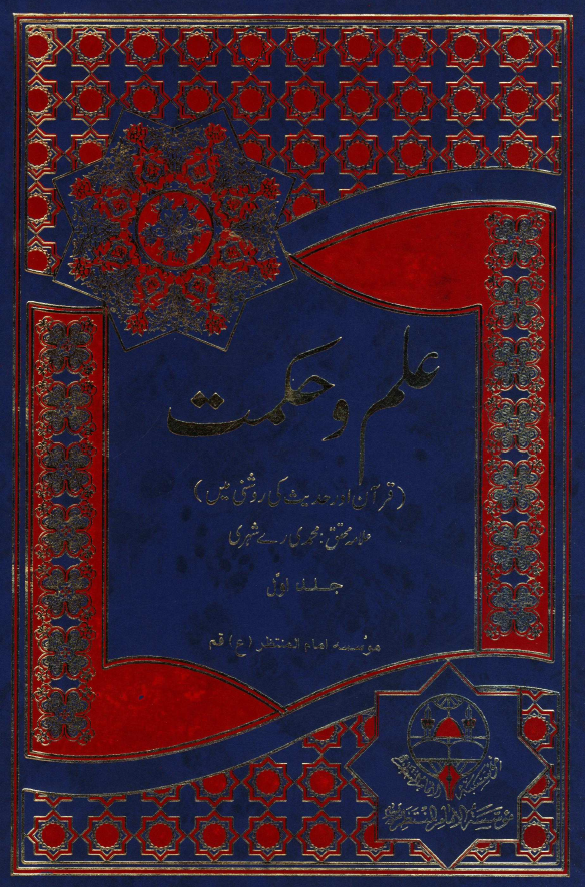 علم و حکمت
(قرآن اور حدیث کی روشنی میں)
علامہ محقق: محمدی رے شہری
جلد اولّ
مؤسسه امام المنتظر (ع) قم
مؤسسة الإمام المنتظر